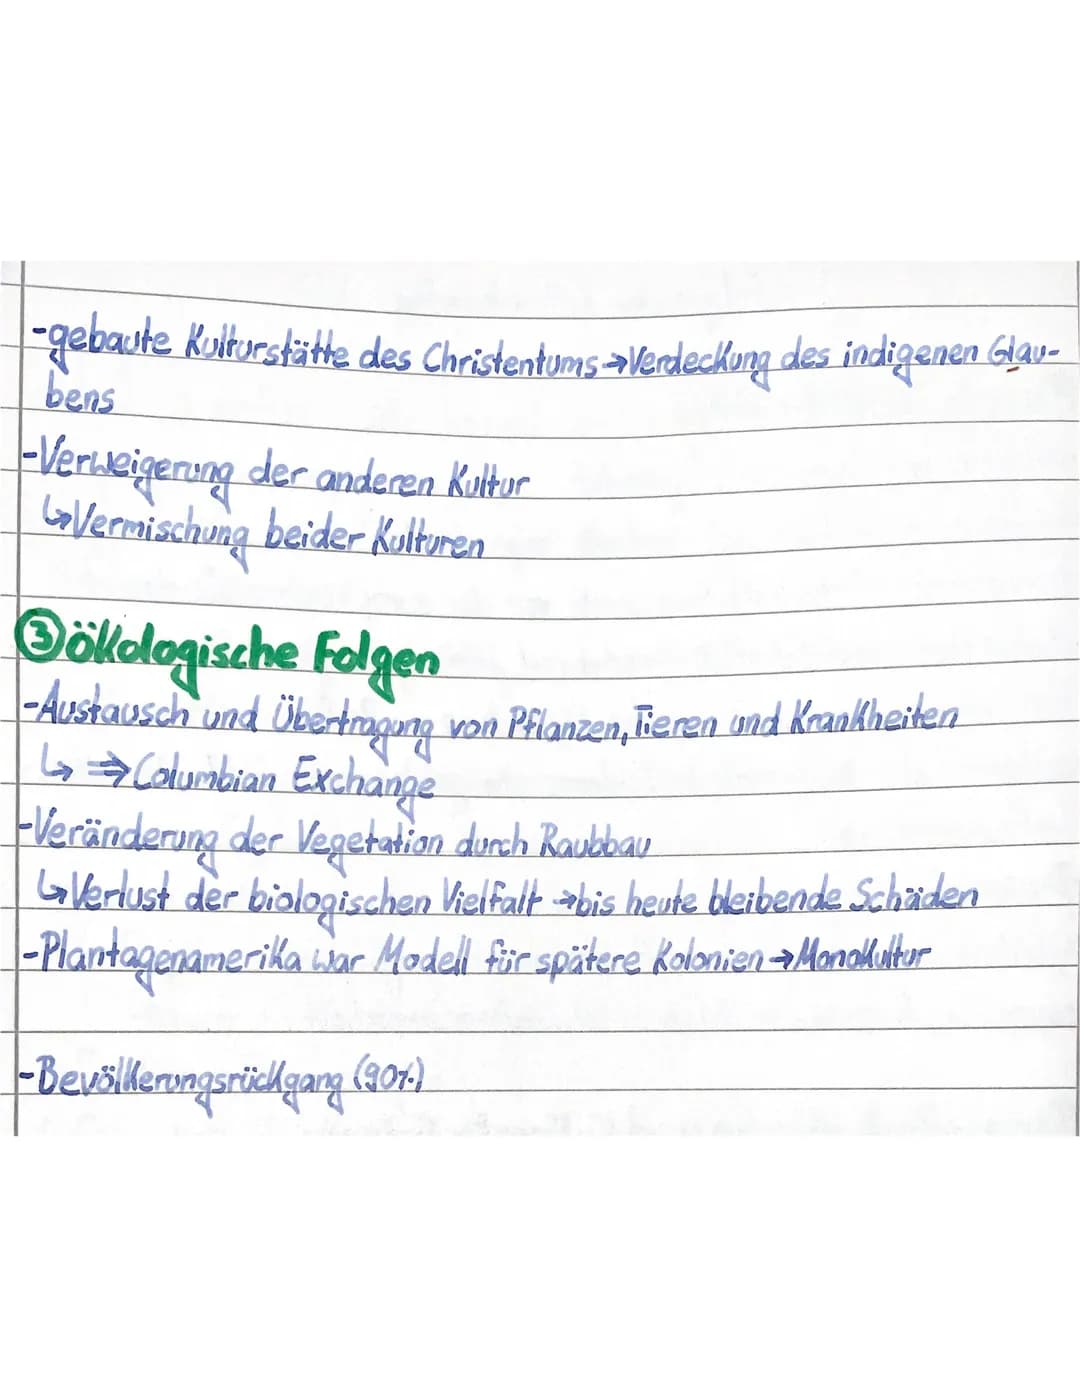 -gebaute Kulturstätte des Christentums→Verdeckung des indigenen Glau-
bens
-Verweigerung der anderen Kultur
↳Vermischung beider Kulturen
③ökologische Folgen
-Austausch und Übertragung von Pflanzen, Tieren und Krankheiten
↳ ⇒Columbian Exchange
-Veränderung der Vegetation durch Raubbau
↳Verlust der biologischen Vielfalt →bis heute bleibende Schäden
-Plantagenamerika war Modell für spätere Kolonien→Monokultur
-Bevölkerungsrückgang (90%)